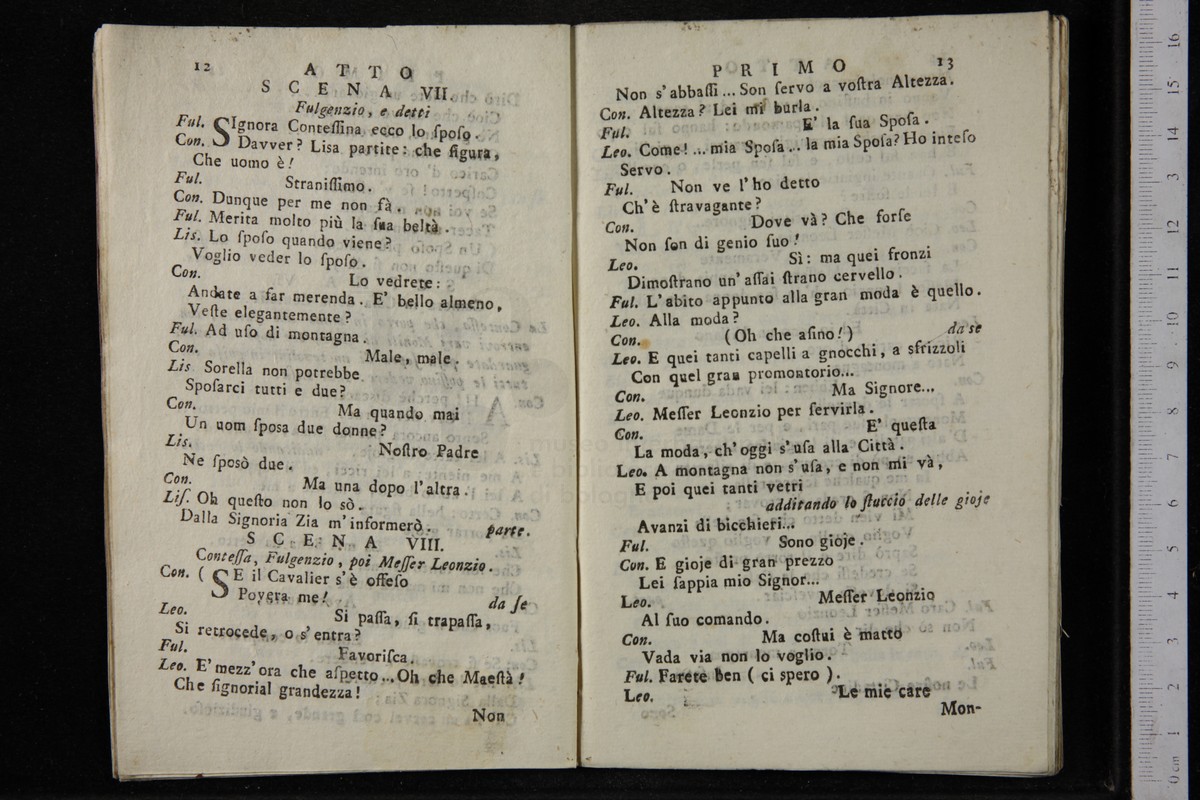 12
ATTO
SCENA VII.
Fulgenzio, e detti
Ful. SIgnora Conteſſina ecco lo ſpoſo.
Con. Davver? Lisa partite: che figura,
Che uomo è!
Ful. Straniſſimo.
Con. Dunque per me non fà.
Ful. Merita molto più la ſua beltà.
Lis. Lo ſpoſo quando viene?
Voglio veder lo ſpoſo.
Con. Lo vedrete:
Andate a far merenda. E' bello almeno,
Veſte elegantemente?
Ful. Ad uſo di montagna.
Con. Male, male.
Lis Sorella non potrebbe
Spoſarci tutti e due?
Con. Ma quando mai
Un uom ſposa due donne?
Lis. Noſtro Padre
Ne ſposò due.
Con. Ma una dopo l'altra.
Liſ. Oh queſto non lo sò.
Dalla Signoria Zia m'informerò. parte.
SCENA VIII.
Conteſſa, Fulgenzio, poi Meſſer Leonzio.
Con. ( SE il Cavalier s'è offeſo
Povera me! da ſe
Leo. Si paſſa, ſi trapaſſa,
Si retrocede, o s'entra?
Ful. Favoriſca.
Leo. E' mezz'ora che aſpetto... Oh che Maeſtà!
Che ſignorial grandezza!
Non
PRIMO
13
Non s'abbaſſi... Son ſervo a voſtra Altezza.
Con. Altezza? Lei mi burla.
Ful. E' la ſua Spoſa.
Leo. Come! ... mia Spoſa... la mia Spoſa? Ho inteſo
Servo.
Ful. Non ve l'ho detto
Ch'è ſtravagante?
Con. Dove và? Che forſe
Non ſon di genio ſuo!
Leo. Sì: ma quei fronzi
Dimoſtrano un'aſſai ſtrano cervello.
Ful. L'abito appunto alla gran moda è quello.
Leo. Alla moda?
Con. (Oh che aſino!) da se
Leo. E quei tanti capelli a gnocchi, a sfrizzoli
Con quel gran promontorio...
Con. Ma Signore...
Leo. Meſſer Leonzio per ſervirla.
Con. E' queſta
La moda, ch'oggi s'uſa alla Città.
Leo. A montagna non s'uſa, e non mi và,
E poi quei tanti vetri
additando lo ſtuccio delle gioje
Avanzi di bicchieri...
Ful. Sono gioje.
Con. E gioje di gran prezzo
Lei ſappia mio Signor...
Leo. Meſſer Leonzio
Al ſuo comando.
Con. Ma coſtui è matto
Vada via non lo voglio.
Ful. Farete ben ( ci spero ).
Leo. Le mie care
Mon-
0 cm 1 2 3 4 5 6 7 8 9 10 11 12 13 14 15 16